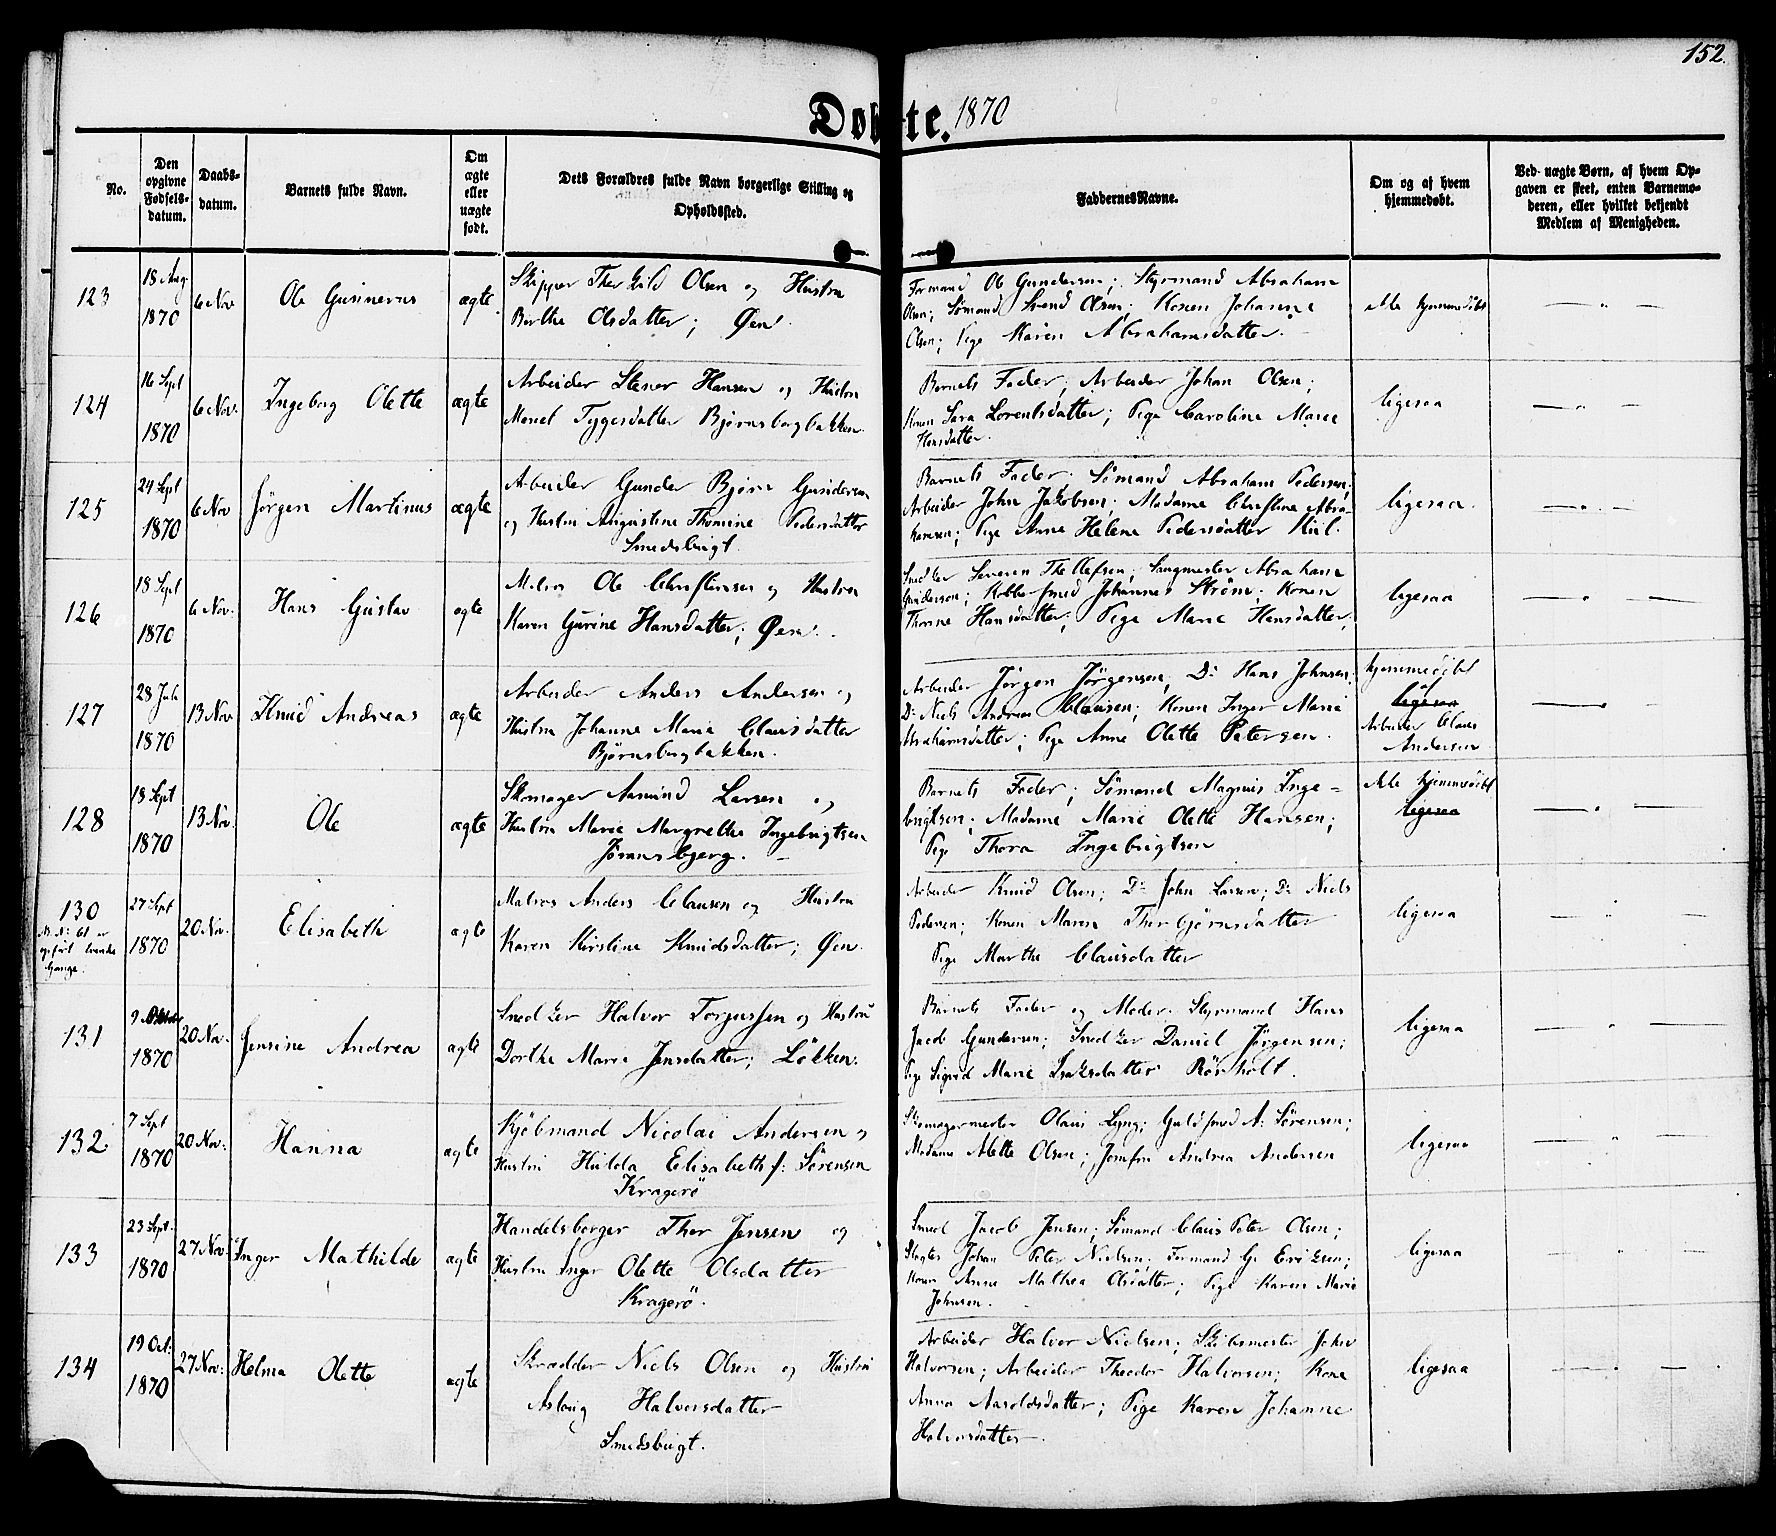 152.
Døbte. 1870
No.
Den opgivne Fødsels-datum.
Daabs-datum.
Barnets fulde Navn.
Om ægte eller uægte født.
Dets Forældres fulde Navn borgerlige Stilling og Opholdssted.
Faddernes Navne.
Om og af hvem hjemmedøbt.
Ved uægte Børn, af hvem Opgaven er skeet, enten Barnemoderen, eller hvilket bekjendt Medlem af Menigheden.
123
18 Aug 1870
6 Nov
Ole Gunnerus
ægte
Skipper Therkild Olsen og Hustru
Berthe Olsdatter; Øen.
Formand Ole Gundersen; Styrmand Abraham
Olsen; Sømand Svend Olsen; Konen Johanne
Olsen; Pige Karen Abrahamsdatter.
ikke hjemmedöbt
124
16 Sept 1870
6 Nov.
Ingeborg Olette
ægte
Arbeider Stener Hansen og Hustru
Maret Tygesdatter Bjørnsborgbakken.
Barnets Fader; Arbeider Johan Olsen;
Konen Sara Lorentsdatter; Pige Caroline Marie
Hansdatter.
ligesaa
125
24 Sept 1870
6 Nov
Jørgen Martinus
ægte
Arbeider Gunder Bjørn Gundersen
og Hustru Augustine Thomine Pedersdatter
Smedsbugt.
Barnets Fader; Sømand Abraham Pedersen;
Arbeider John Jakobsen; Madame Christine Abra-
hamsen; Pige Anne Helene Pedersdatter Kiil.
ligesaa.
126
18 Sept 1870
6 Nov.
Hans Gustav
ægte
Matros Ole Christensen og Hustru
Karen Gurine Hansdatter; Øen.
Snedker Severin Thellefsen; Sangmester Abraham
Gundersen; Kobbersmed Johannes Strøm; Konen
Thorine Hansdatter; Pige Marie Hansdatter;
ligesaa
127
28 Juli 1870
13 Nov
Knud Andreas
ægte
Arbeider Anders Andersen og
Hustru Johanne Maria Clausdatter
Bjørnsborgbakken.
Arbeider Jørgen Jørgensen; Do Hans Johnsen;
Do Niels Andreas Clausen; Konen Inger Maria
Abrahamsdatter; Pige Anne Olette Petersen.
hjemmedöbt
af
ligesaa
Arbeider Claus
Andersen
128
18 Sept 1870
13 Nov.
Ole
ægte
Skomager Aamund Larsen og
Hustru Marie Margrethe Ingebrigtsen
Jomansbjerg.
Barnets Fader; Sømand Magnus Inge-
brigtsen; Madame Marie Olette Hansen;
Pige Thora Ingebrigtsen
ikke hjemmedöbt
ligesaa
130
N. No: 61 er
opført tvende
Gange.
27 Sept 1870
20 Nov.
Elisabeth
ægte
Matros Anders Clausen og Hustru
Karen Kirstine Knudsdatter; Øen.
Arbeider Knud Olsen; Do John Larsen; Do Niels
Pedersen; Konen Maren Thorbjørnsdatter
Pige Marthe Clausdatter
ligesaa
131
9 Oktober 1870
20 Nov.
Jensine Andrea
ægte
Snedker Halvor Torgussen og Hustru
Dorthe Marie Jensdatter; Løkken.
Barnets Fader og Moder; Styrmand Hans
Jacob Gundersen; Snedker Daniel Jørgensen;
Pige Sigrid Marie Isaksdatter Rönholt.
ligesaa
132
7 Sept 1870
20 Nov.
Hanna
ægte
Kjöbmand Nicolai Andersen og
Hustru Hulda Elisabeth f: Sörensen
Kragerö
Skomagermester Olaus Lyng; Guldsmed A. Sörensen;
Madame Mette Olsen; Jomfru Andrea Andersen
ligesaa
133
23 Sept. 1870
27 Nov.
Inger Mathilde
ægte
Handelsborger Thor Jensen og
Hustru Inger Olette Olsdatter
Kragerö.
Smed Jacob Jensen; Sömand Claus Peter Olsen;
Slagter Johan Peter Nielsen; Formand G. Eriksen;
Konen Anne Mathea Olsdatter; Pige Karen Marie
Johnsen.
ligesaa
134
19 Oct. 1870
27 Nov.
Helma Olette
ægte
Skrædder Niels Olsen og Hustru
Aslaug Halvorsdatter
Smedsbugt.
Arbeider Halvor Nielsen; Skibsmester John
Halvorsen; Arbeider Theodor Halvorsen; Kone
Anna Aaroldsdatter; Pige Karen Johanne
Halvorsdatter
ligesaa